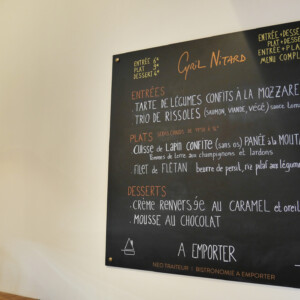 ENTRÉE
PLAT
DESSERT
Cyril Nitard
ENTRÉE+DESSE
PLAT+DESSE
ENTRÉE+PLA
MENU COMPL
ENTRÉES
TARTE DE LÉGUMES CONFITS À LA MOZZARE
TRIO DE RISSOLES (SAUMON, VIANDE, VÉGÉ)
PLATS
CUISSE de LAPIN CONFITE (sans os) PANÉE à la MOUTA
Pommes de terre aux champignons et lardons
FILET de FLÉTAN beurre de persil, riz pilaf aux légum
DESSERTS
. CRÈME RENVERSÉE AU CARAMEL et oreil
. MOUSSE AU CHOCOLAT
A EMPORTER
NÉO TRAITEUR BISTRONOMIE A EMPORTER